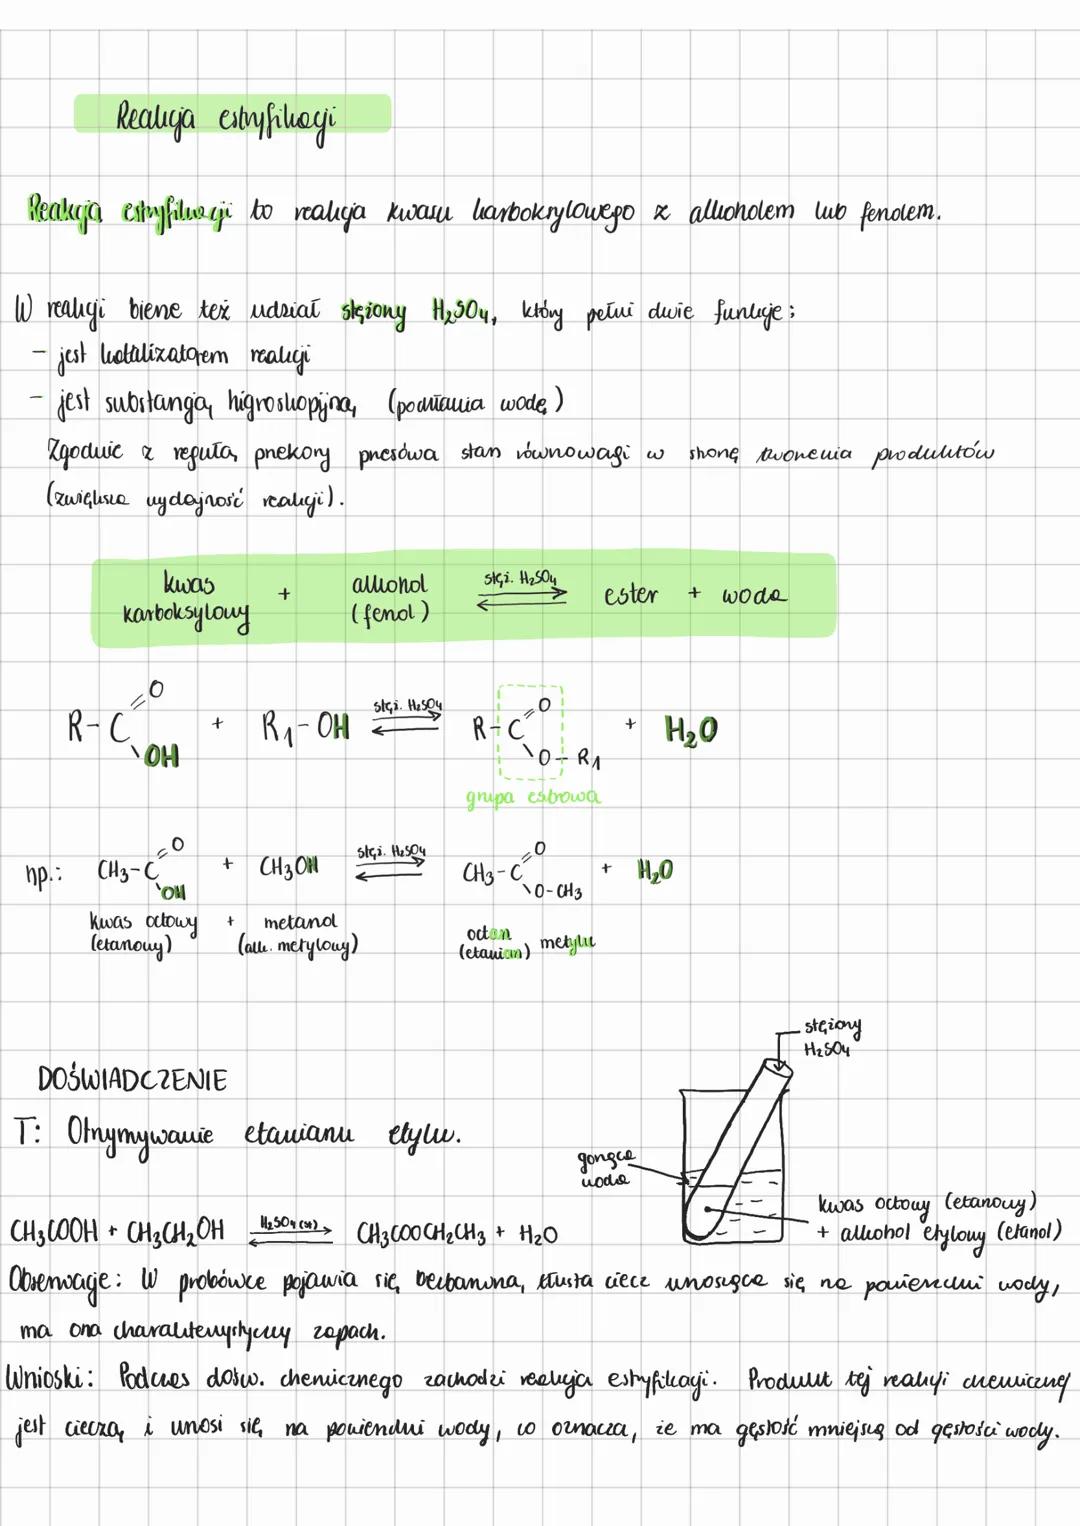 Reakcja estryfikacji
Reakcja estryfikacji to reakcja kwasu karbokrylowego z alkoholem lub fenolem.
W reakcji bierze też udział stężony H₂SO₄, który pełni dwie funkcje:
- jest katalizatorem reakcji
- jest substancją higroskopijną (pochłania wodę)
Zgodnie z regułą przekory przesówa stan równowagi w stronę tworzenia produktów
(zwiększa wydajność reakcji).
kwas karboksylowy + alkohol (fenol) ⇌ stęż. H₂SO₄ ester + woda
R-C=O \OH + R₁-OH ⇌ stęż. H₂SO₄ R-C=O \O-R₁ + H₂O
grupa estrowa
np.: CH₃-C=O \OH + CH₃OH ⇌ stęż. H₂SO₄ CH₃-C=O \O-CH₃ + H₂O
kwas octowy (etanowy) + metanol (alk. metylowy) octan (etanian) metylu
stężony
H₂SO₄
DOŚWIADCZENIE
T: Otrzymywanie etanianu etylu.
gorąca
woda
kwas octowy (etanowy)
+ alkohol etylowy (etanol)
CH₃COOH + CH₃CH₂OH ⇌ H₂SO₄ (st) CH₃COOCH₂CH₃ + H₂O
Obserwacje: W probówce pojawia się bezbarwna, tłusta ciecz unosząca się na powierzchni wody,
ma ona charakterystyczny zapach.
Wnioski: Podczas dośw. chemicznego zachodzi reakcja estryfikacji. Produkt tej reakcji chemicznej
jest cieczą i unosi się na powierzchni wody, co oznacza, że ma gęstość mniejszą od gęstości wody.